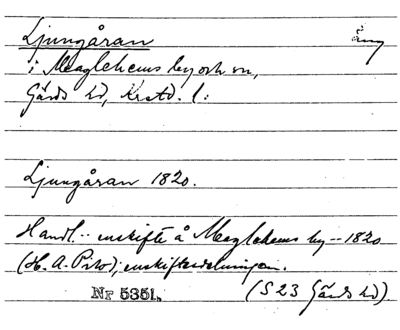 Ljungåran äng
i Maglehems by och sn,
Gärds hd, Krstd. l:
Ljungåran 1820.
Handl. - enskifte å Maglehems by - 1820
(H. A. Prtx); enskiftesdelningen.
Nr 5351. (S 23 Gärds hd)